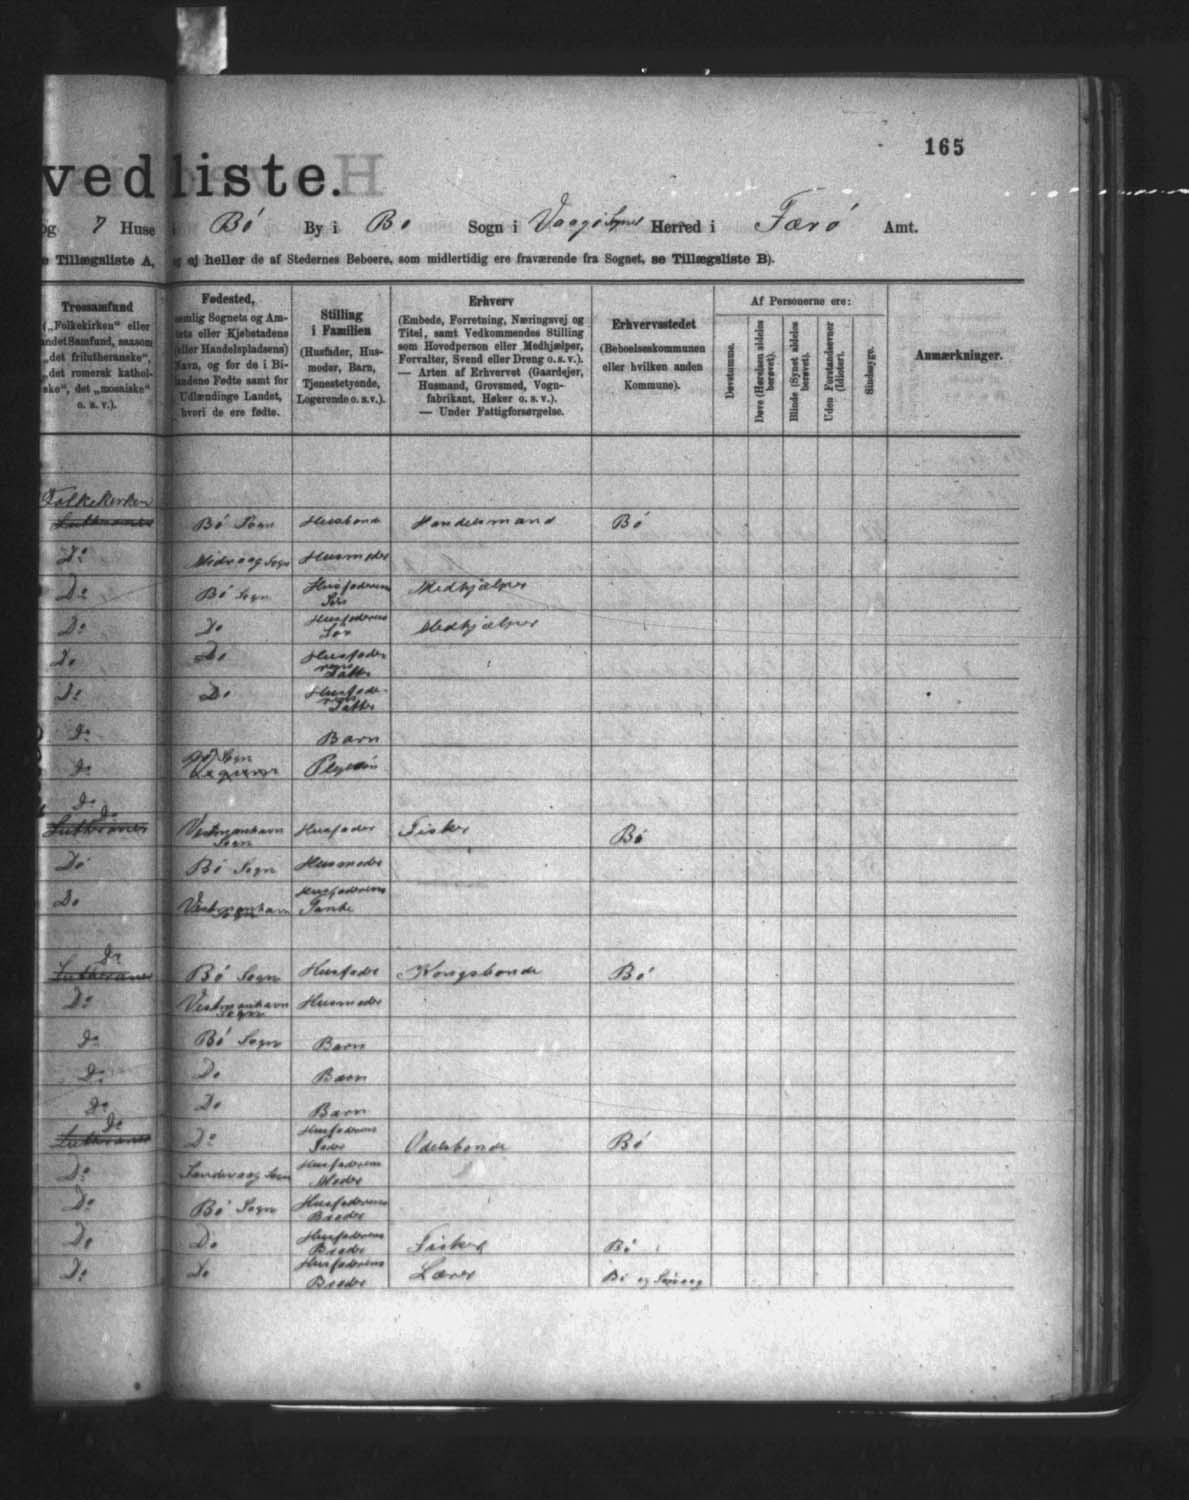 165
vedliste.
og 7 Huse i Bø By i Bø Sogn i Vaagø Syssel Herred i Færø Amt.
e Tillægsliste A, og ej heller de af Stedernes Beboere, som midlertidig ere fraværende fra Sognet, se Tillægsliste B).
Trossamfund
(„Folkekirken“ eller
andet Samfund, saasom
„det frilutheranske“,
„det romersk kathol-
ske“, det „mosaiske“
o. s. v.).
Fødested,
nemlig Sognets og Am-
tets eller Kjøbstadens
(eller Handelspladsens)
Navn, og for de i Bi-
landene Fødte samt for
Udlændinge Landet,
hvori de ere fødte.
Stilling
i Familien
(Husfader, Hus-
moder, Barn,
Tjenestetyende,
Logerende o. s. v.).
Erhverv
(Embede, Forretning, Næringsvej og
Titel, samt Vedkommendes Stilling
som Hovedperson eller Medhjælper,
Forvalter, Svend eller Dreng o. s. v.).
— Arten af Erhvervet (Gaardejer,
Husmand, Grovsmed, Vogn-
fabrikant, Høker o. s. v.).
— Under Fattigforsørgelse.
Erhvervsstedet
(Beboelseskommunen
eller hvilken anden
Kommune).
Af Personerne ere:
Døvstumme.
Døve (Hørelsen aldeles
berøvet).
Blinde (Synet aldeles
berøvet).
Uden Forstandsævner
(Idioter).
Sindssyge.
Anmærkninger.
Folkekirken
Lutheraner Bø Sogn Husbonde Handelsmand Bø
Do Midvaag Sogn Husmoder
Do Bø Sogn Husfaderens Søn Medhjælper
Do Do Husfaderens Søn Medhjælper
Do Do Husfaderens Datter
Do Do Husfaderens Datter
Do Barn
Do Bø Sogn Plejesøn
Do
Do
Lutheraner Vestmanhavn Sogn Husfader Fisker Bø
Do Bø Sogn Husmoder
Do Vestmanhavn Sogn Husfaderens Tante
Do
Lutheraner Bø Sogn Husfader Kongsbonde Bø
Do Vestmanhavn Sogn Husmoder
Do Bø Sogn Barn
Do Do Barn
Do Do Barn
Do
Lutheraner Do Husfaderens Fader Odelsbonde Bø
Do Sandevaag Sogn Husfaderens Moder
Do Bø Sogn Husfaderens Broder
Do Do Husfaderens Broder Fisker Bø
Do Do Husfaderens Broder Lærer Bø og Sørvaag